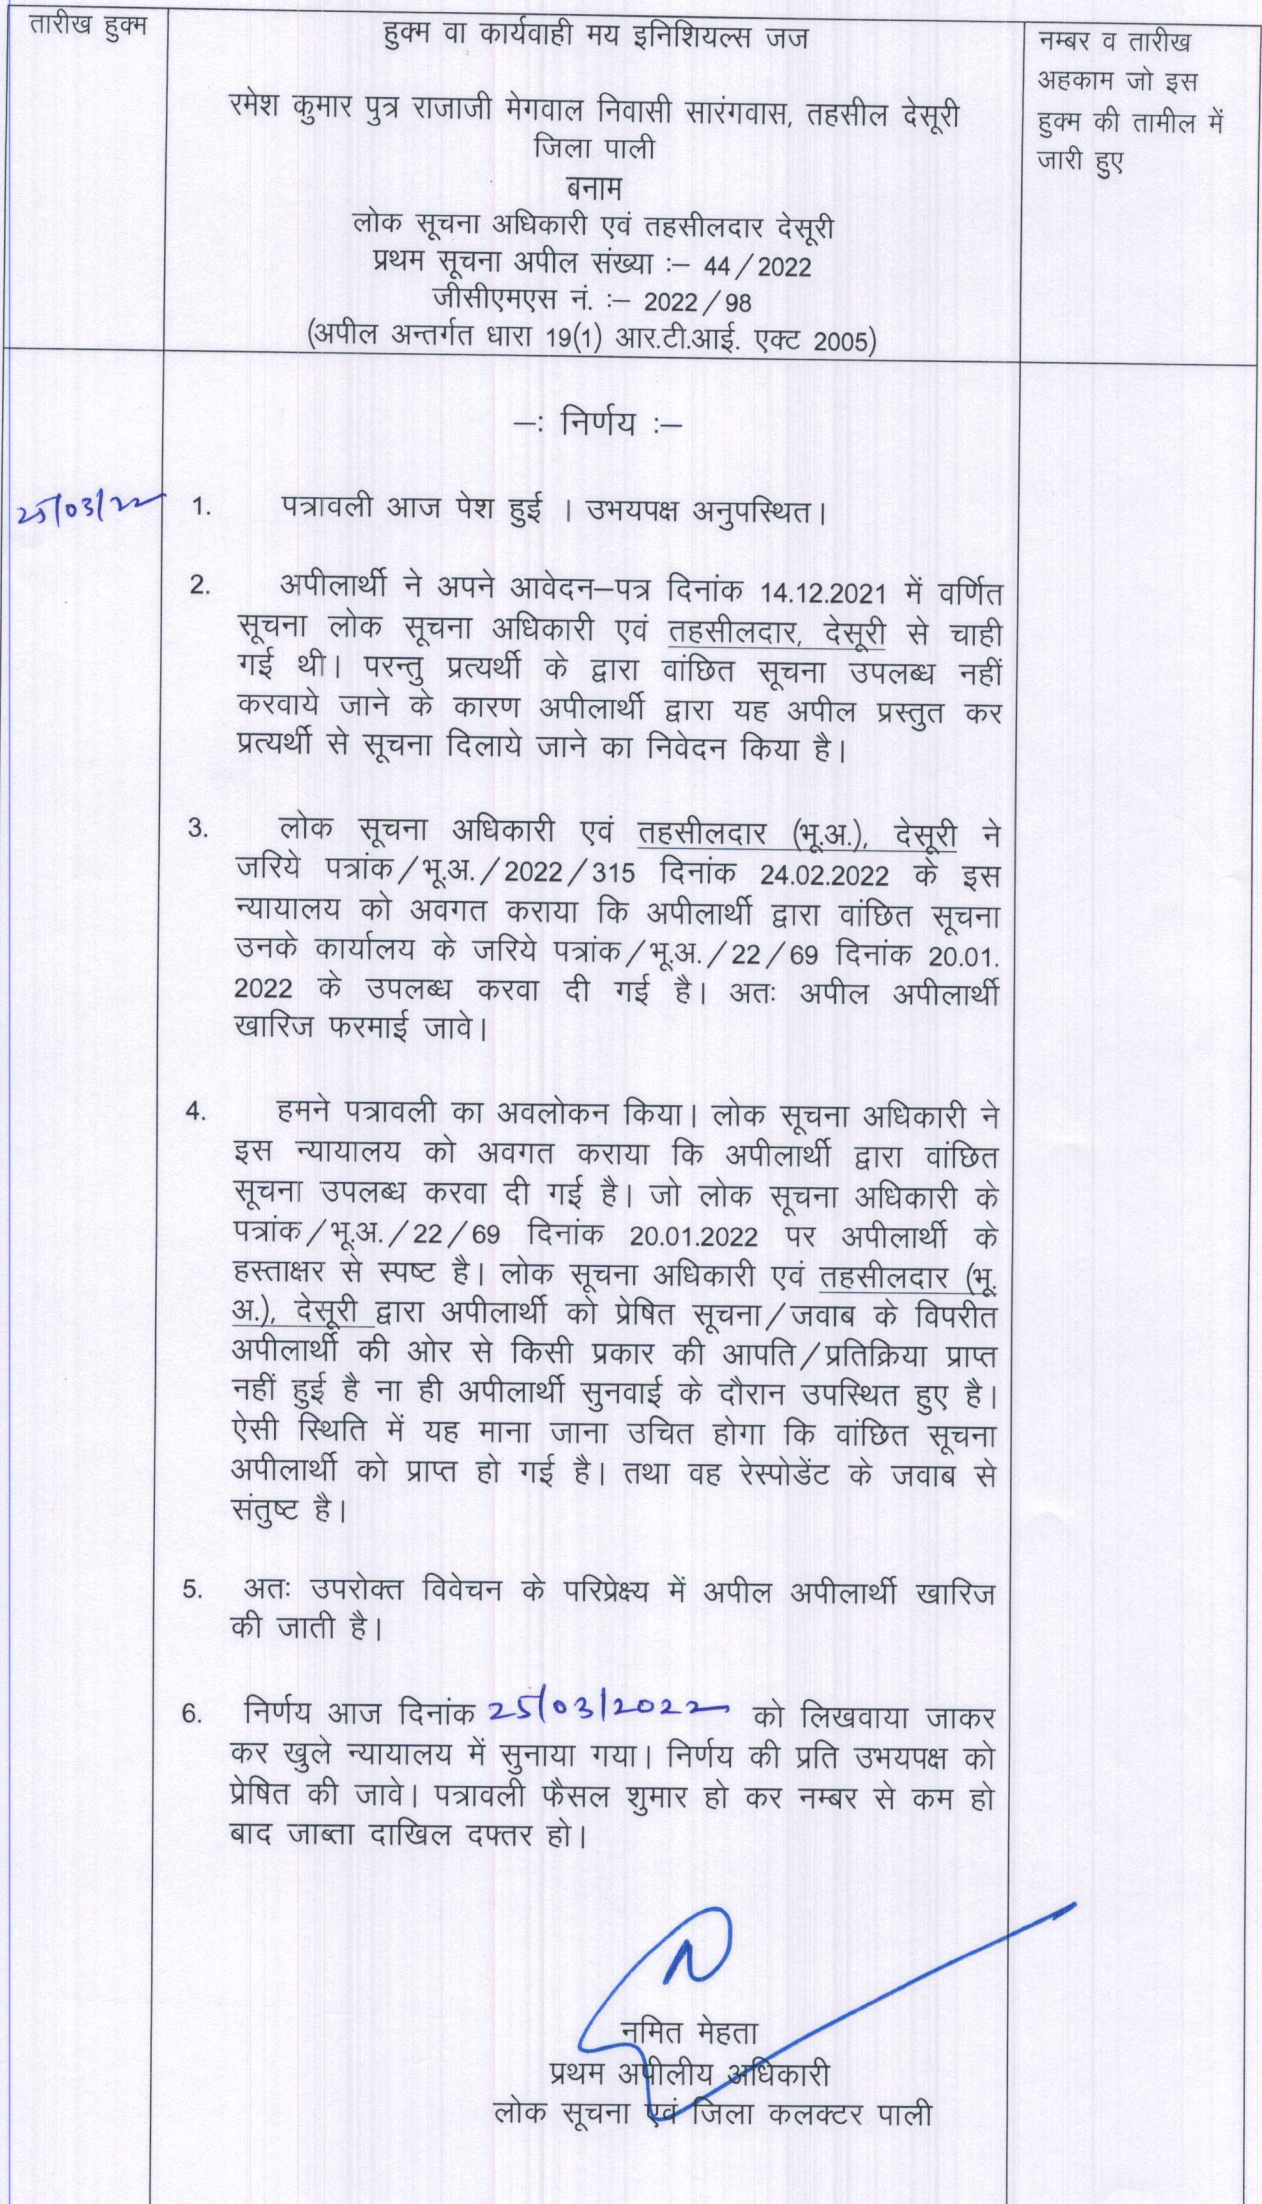 तारीख हुक्म
हुक्म वा कार्यवाही मय इनिशियल्स जज
नम्बर व तारीख
अहकाम जो इस
हुक्म की तामील में
जारी हुए
रमेश कुमार पुत्र राजाजी मेगवाल निवासी सारंगवास, तहसील देसूरी
जिला पाली
बनाम
लोक सूचना अधिकारी एवं तहसीलदार देसूरी
प्रथम सूचना अपील संख्या :– 44/2022
जीसीएमएस नं. :– 2022/98
(अपील अन्तर्गत धारा 19(1) आर.टी.आई. एक्ट 2005)
–: निर्णय :–
25/03/22
1. पत्रावली आज पेश हुई । उभयपक्ष अनुपस्थित।
2. अपीलार्थी ने अपने आवेदन–पत्र दिनांक 14.12.2021 में वर्णित
सूचना लोक सूचना अधिकारी एवं तहसीलदार, देसूरी से चाही
गई थी। परन्तु प्रत्यर्थी के द्वारा वांछित सूचना उपलब्ध नहीं
करवाये जाने के कारण अपीलार्थी द्वारा यह अपील प्रस्तुत कर
प्रत्यर्थी से सूचना दिलाये जाने का निवेदन किया है।
3. लोक सूचना अधिकारी एवं तहसीलदार (भू.अ.), देसूरी ने
जरिये पत्रांक/भू.अ./2022/315 दिनांक 24.02.2022 के इस
न्यायालय को अवगत कराया कि अपीलार्थी द्वारा वांछित सूचना
उनके कार्यालय के जरिये पत्रांक/भू.अ./22/69 दिनांक 20.01.
2022 के उपलब्ध करवा दी गई है। अतः अपील अपीलार्थी
खारिज फरमाई जावे।
4. हमने पत्रावली का अवलोकन किया। लोक सूचना अधिकारी ने
इस न्यायालय को अवगत कराया कि अपीलार्थी द्वारा वांछित
सूचना उपलब्ध करवा दी गई है। जो लोक सूचना अधिकारी के
पत्रांक/भू.अ./22/69 दिनांक 20.01.2022 पर अपीलार्थी के
हस्ताक्षर से स्पष्ट है। लोक सूचना अधिकारी एवं तहसीलदार (भू.
अ.), देसूरी द्वारा अपीलार्थी को प्रेषित सूचना/जवाब के विपरीत
अपीलार्थी की ओर से किसी प्रकार की आपति/प्रतिक्रिया प्राप्त
नहीं हुई है ना ही अपीलार्थी सुनवाई के दौरान उपस्थित हुए है।
ऐसी स्थिति में यह माना जाना उचित होगा कि वांछित सूचना
अपीलार्थी को प्राप्त हो गई है। तथा वह रेस्पोडेंट के जवाब से
संतुष्ट है।
5. अतः उपरोक्त विवेचन के परिप्रेक्ष्य में अपील अपीलार्थी खारिज
की जाती है।
6. निर्णय आज दिनांक 25/03/2022 को लिखवाया जाकर
कर खुले न्यायालय में सुनाया गया। निर्णय की प्रति उभयपक्ष को
प्रेषित की जावे। पत्रावली फैसल शुमार हो कर नम्बर से कम हो
बाद जाब्ता दाखिल दफ्तर हो।
नमित मेहता
प्रथम अपीलीय अधिकारी
लोक सूचना एवं जिला कलक्टर पाली